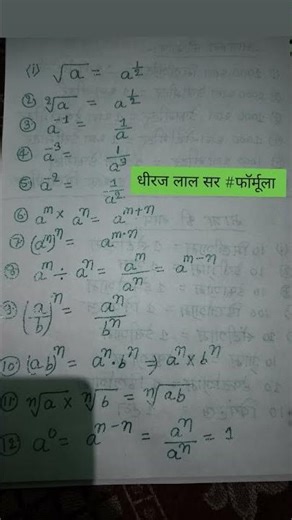 (1) √a = a^½
② ²√a = a^½
③ a⁻¹ = 1/a
④ a⁻³ = 1/a³
⑤ a⁻² = 1/a²
धीरज लाल सर #फॉर्मूला
⑥ aᵐ × aⁿ = aᵐ⁺ⁿ
⑦ (aᵐ)ⁿ = aᵐ·ⁿ
⑧ aᵐ ÷ aⁿ = aᵐ/aⁿ = aᵐ⁻ⁿ
⑨ (a/b)ⁿ = aⁿ/bⁿ
⑩ (ab)ⁿ = aⁿ·bⁿ ⇒ aⁿ × bⁿ
⑪ ⁿ√a × ⁿ√b = ⁿ√ab
⑫ a⁰ = aⁿ⁻ⁿ = aⁿ/aⁿ = 1